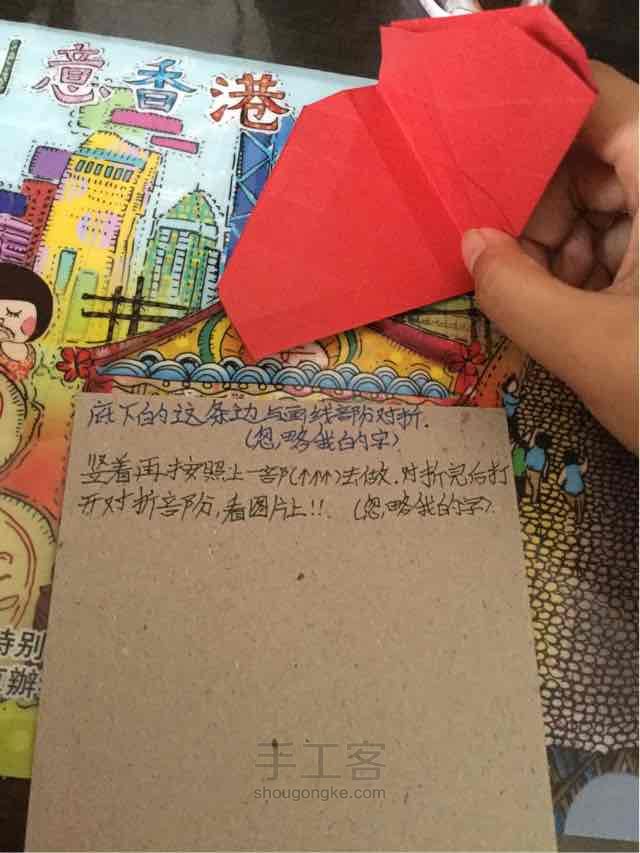 意香港
底下的这条边与画线部分对折.
(忽略我的字)
竖着再按照上一部(↑↑↑)去做.对折完后打
开对折部分,看图片上!!. (忽略我的字).
特别
手工客
shougongke.com